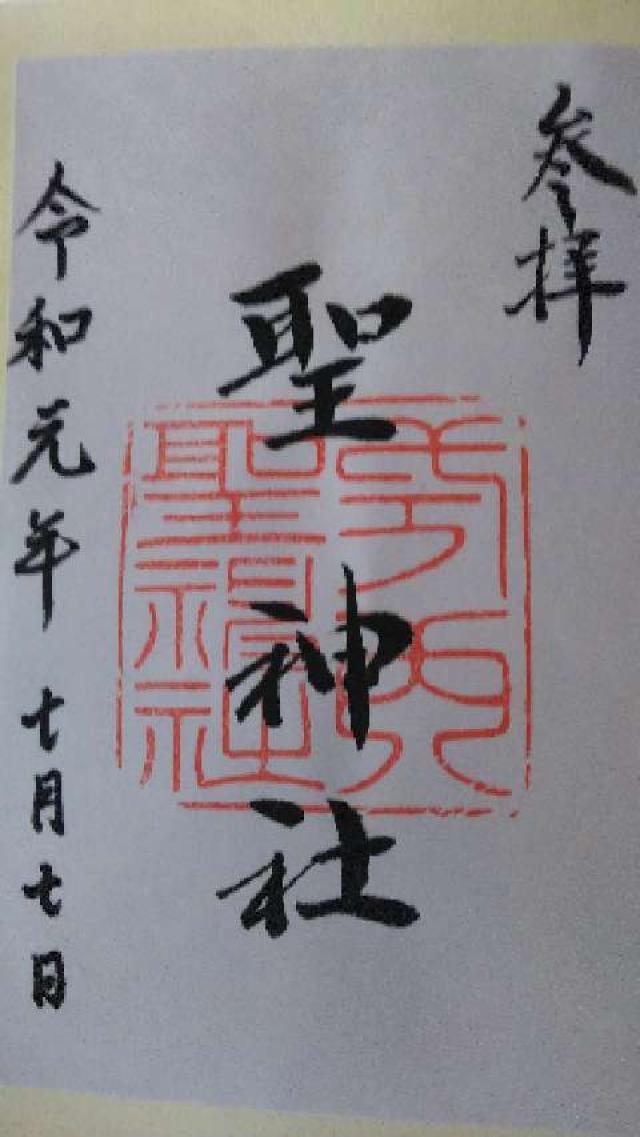 参拝
聖神社
令和元年 七月七日